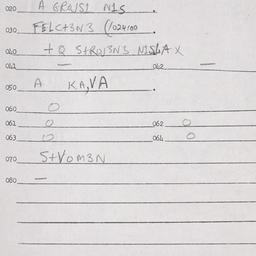 020 A GRQISI NIS .
030 FELC+3N3 (1024100
040 + Q S+ROI3N3 NISLA X
041 — 042 —
050 A KA,VA .
060 0
061 0 062 0
063 0 064 0
070 S+VOM3N
080 —